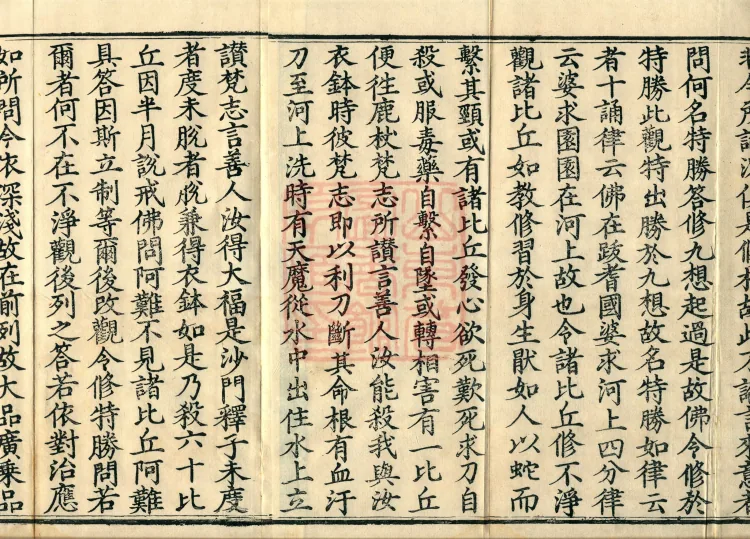 問何名特勝答修九想起過是故佛令修於
特勝此觀特出勝於九想故名特勝如律云
者十誦律云佛在跋耆國婆求河上四分律
云婆求園園在河上故也令諸比丘修不淨
觀諸比丘如教修習於身生猒如人以蛇而
繫其頸或有諸比丘發心欲死歎死求刀自
殺或服毒藥自繫自墜或轉相害有一比丘
便徃鹿杖梵志所讃言善人汝能殺我與汝
衣鉢時彼梵志即以利刀斷其命根有血汙
刀至河上洗時有天魔從水中出住水上立
讃梵志言善人汝得大福是沙門釋子未度
者度未脫者脫兼得衣鉢如是乃殺六十比
丘因半月說戒佛問阿難不見諸比丘阿難
具答因斯立制等爾後改觀令修特勝問若
爾者何不在不淨觀後列之答若依對治應
如所問今依深淺故在前列故大品廣乘品